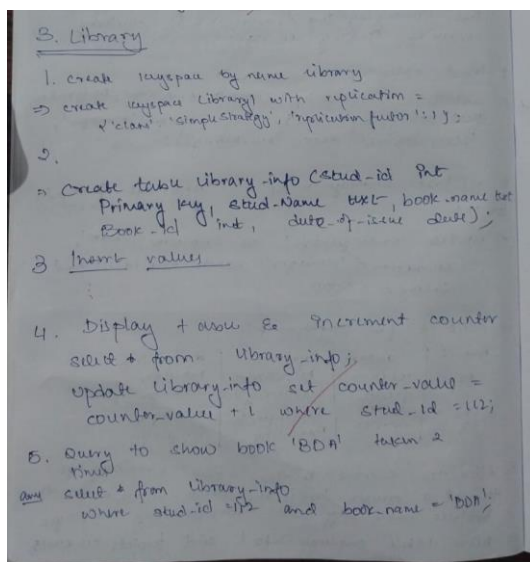 3. Library
1. Create keyspace by name library
⇒ create keyspace Library1 with replication =
{'class' 'simple strategy', 'replication factor' : 1};
2.
⇒ Create table library-info (Stud-id Int
Primary key, stud-Name text, book-name text
Book-id int, date-of-issue date);
3 Insert values
4. Display table & increment counter
select * from library-info;
update library-info set counter-value =
counter-value + 1 where stud-id = 112;
5. Query to show book 'BDA' taken 2
times
select * from library-info
where stud-id = 112 and book-name = 'BDA';